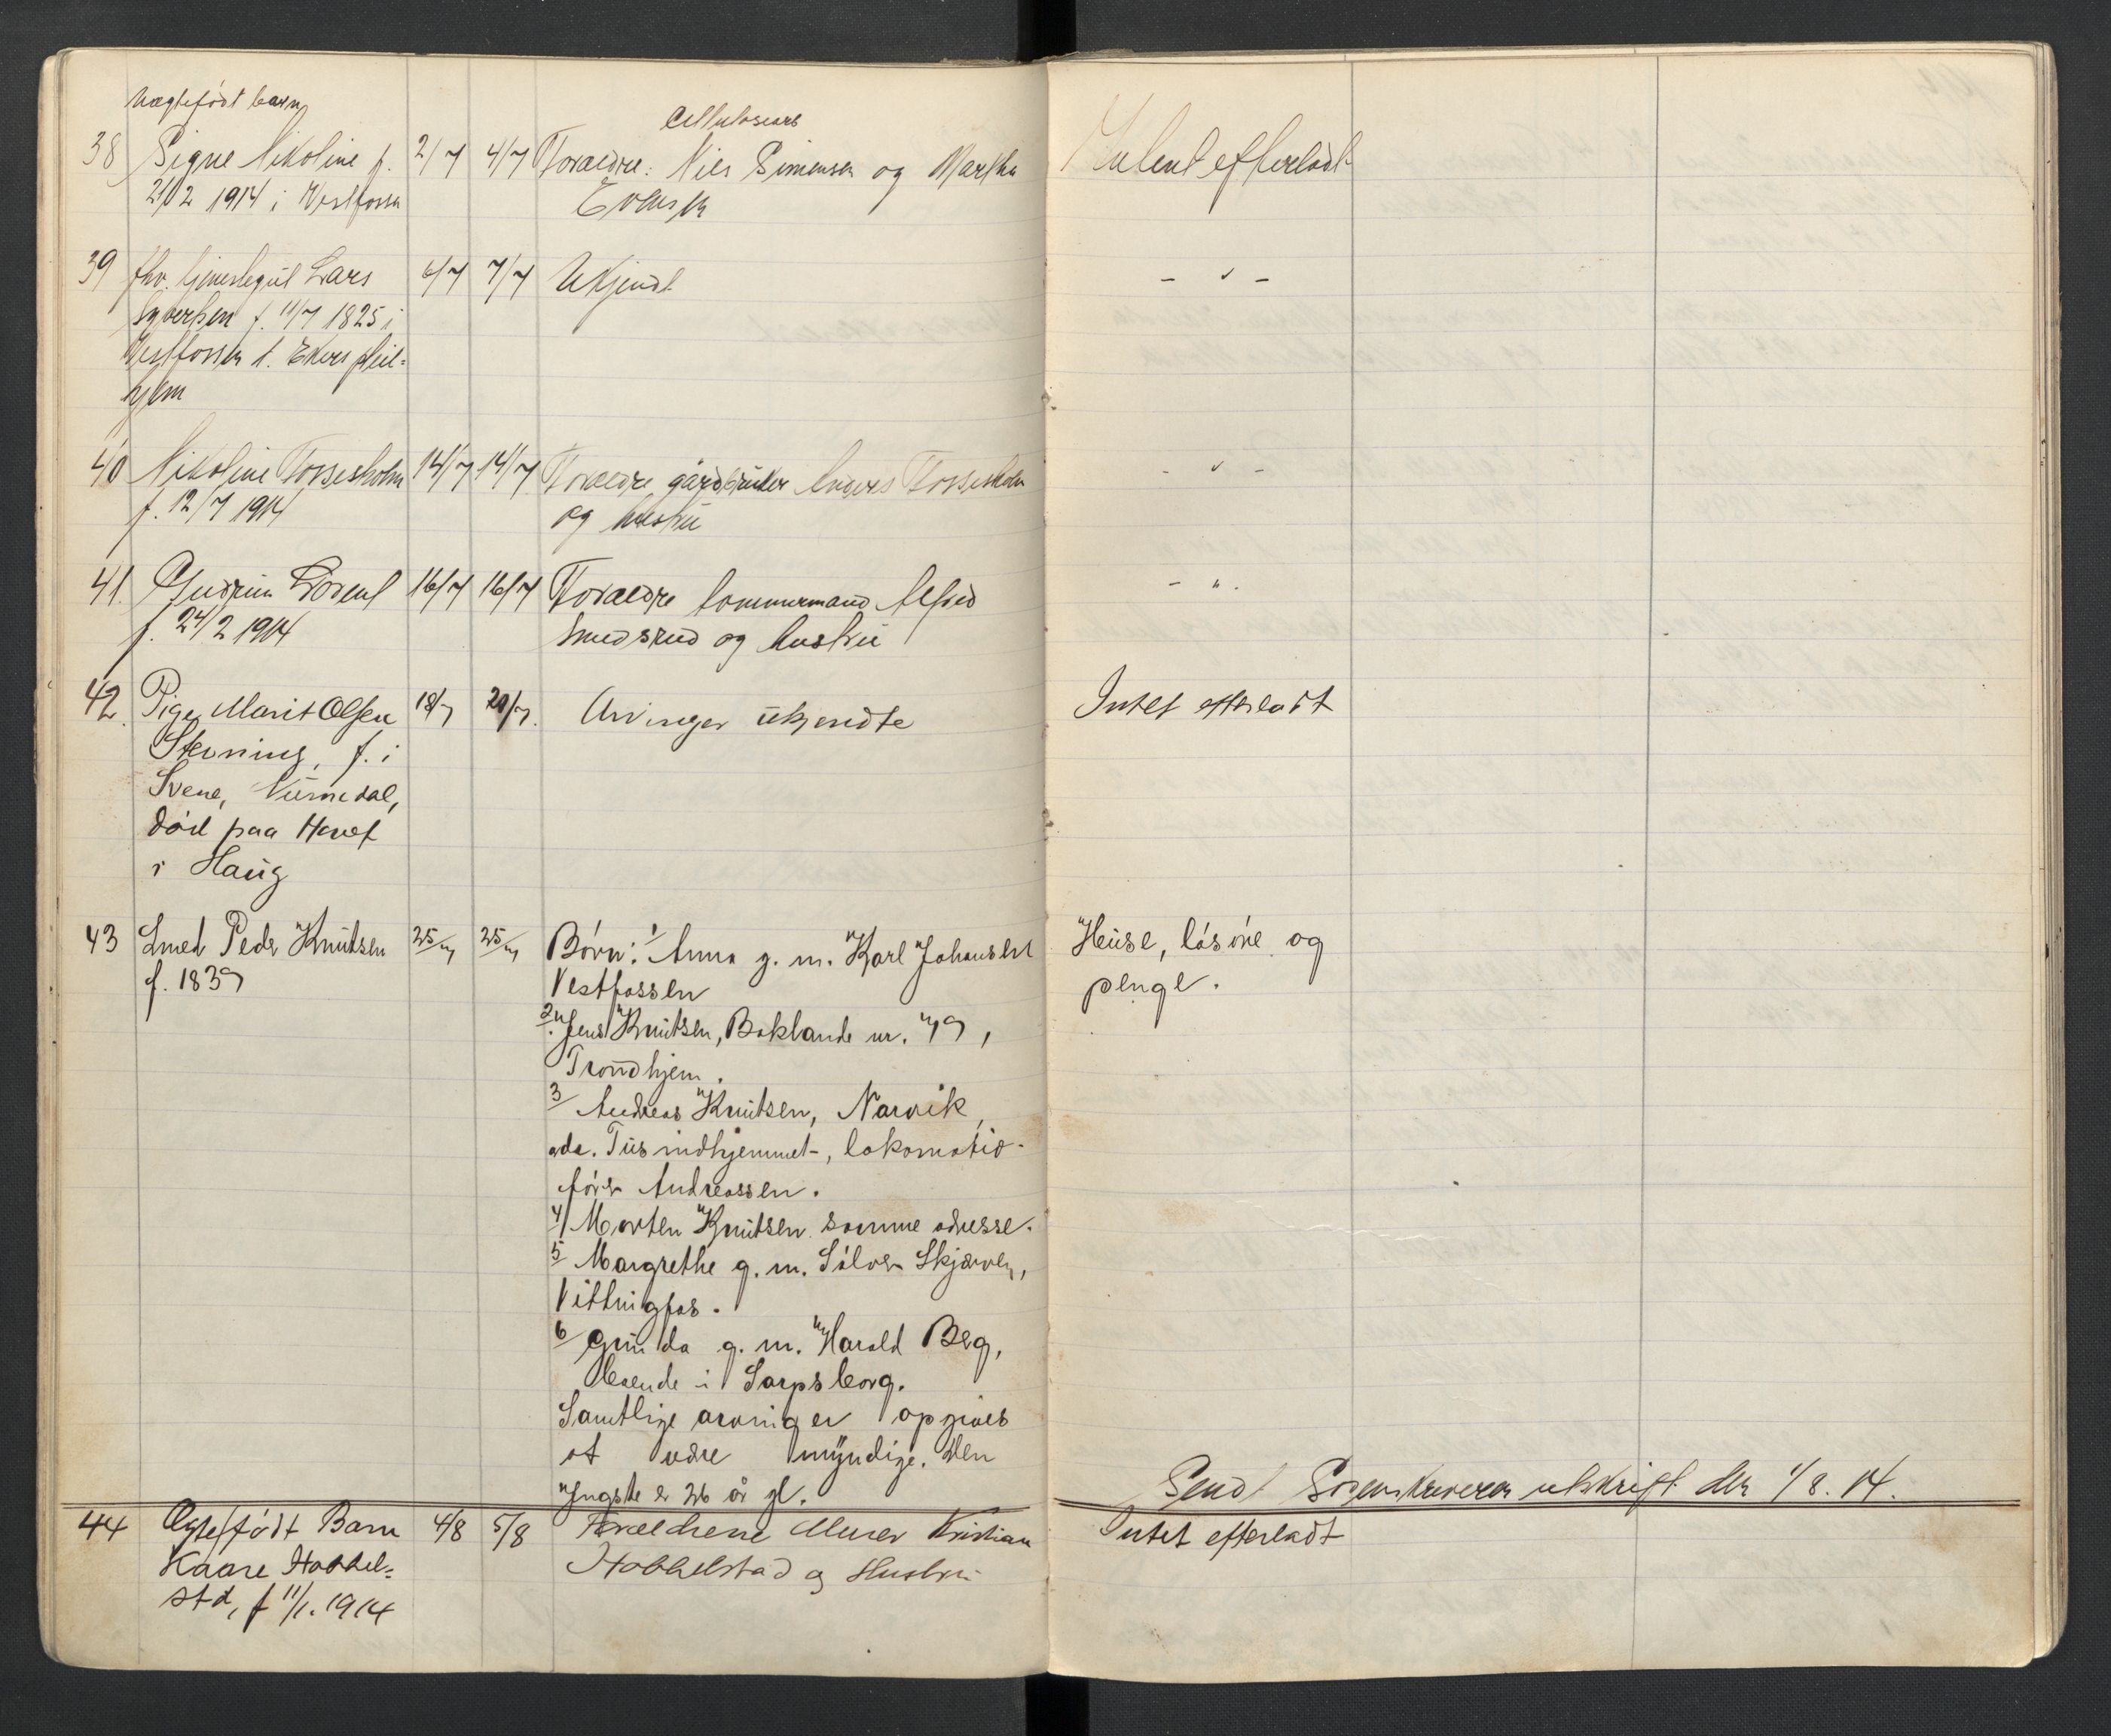 Uægtefødt barn
38 Signe Nikoline f. 2/7 4/7 Forældre: Cellulosearb Nils Simensen og Martha Intent efterladt
21/2 1914 i Vestfossen Evensen
39 fhv. tjenestegut Lars 6/7 7/7 Ukjendt - " -
Syversen f. 11/7 1825 i
Vestfossen t. Ekers pleie-
hjem
40 Nikoline Fossesholm 14/7 14/7 Forældre gårdbruker Anders Fossesholm - " -
f. 12/7 1914 og hustru
41. Gudrun 16/7 16/7 Forældre tømmermand Alfred - " -
f. 24/2 1914 Smedsrud og hustru
42. Pige Marit Olsen 18/7 20/7. Arvinger ukjendte Intet efterladt
Stevning, f. i
Svene, Numedal,
død paa Hovet
i Haug
43 Smed Peder Knutsen 25/7 25/7 Børn: 1/ Anna g. m. Karl Johansen Huse, løsøre og
f. 1839 Vestfossen penge.
2/. Jens Knutsen, Baklande nr. 79,
Trondhjem.
3/ Andreas Knutsen, Narvik,
adr. Tusindhjemmet, lokomotiv-
fører Andreassen.
4/ Morten Knutsen samme adresse.
5/ Margrethe g. m. Sølver Skjærven,
Vittingfos.
6/ Gunda g. m. Harald Berg,
boende i Sarpsborg.
Samtlige arvinger opgives
at være myndige. Den
yngste er 26 år gl. Sendt Sorenskriveren utskrift den 1/8. 14.
44 Ægtefødt Barn 4/8 5/8 Forældrene Murer Kristian Intet efterladt
Kaare Hobbel- Hobbelstad og Hustru
stad, f 11/1. 1914